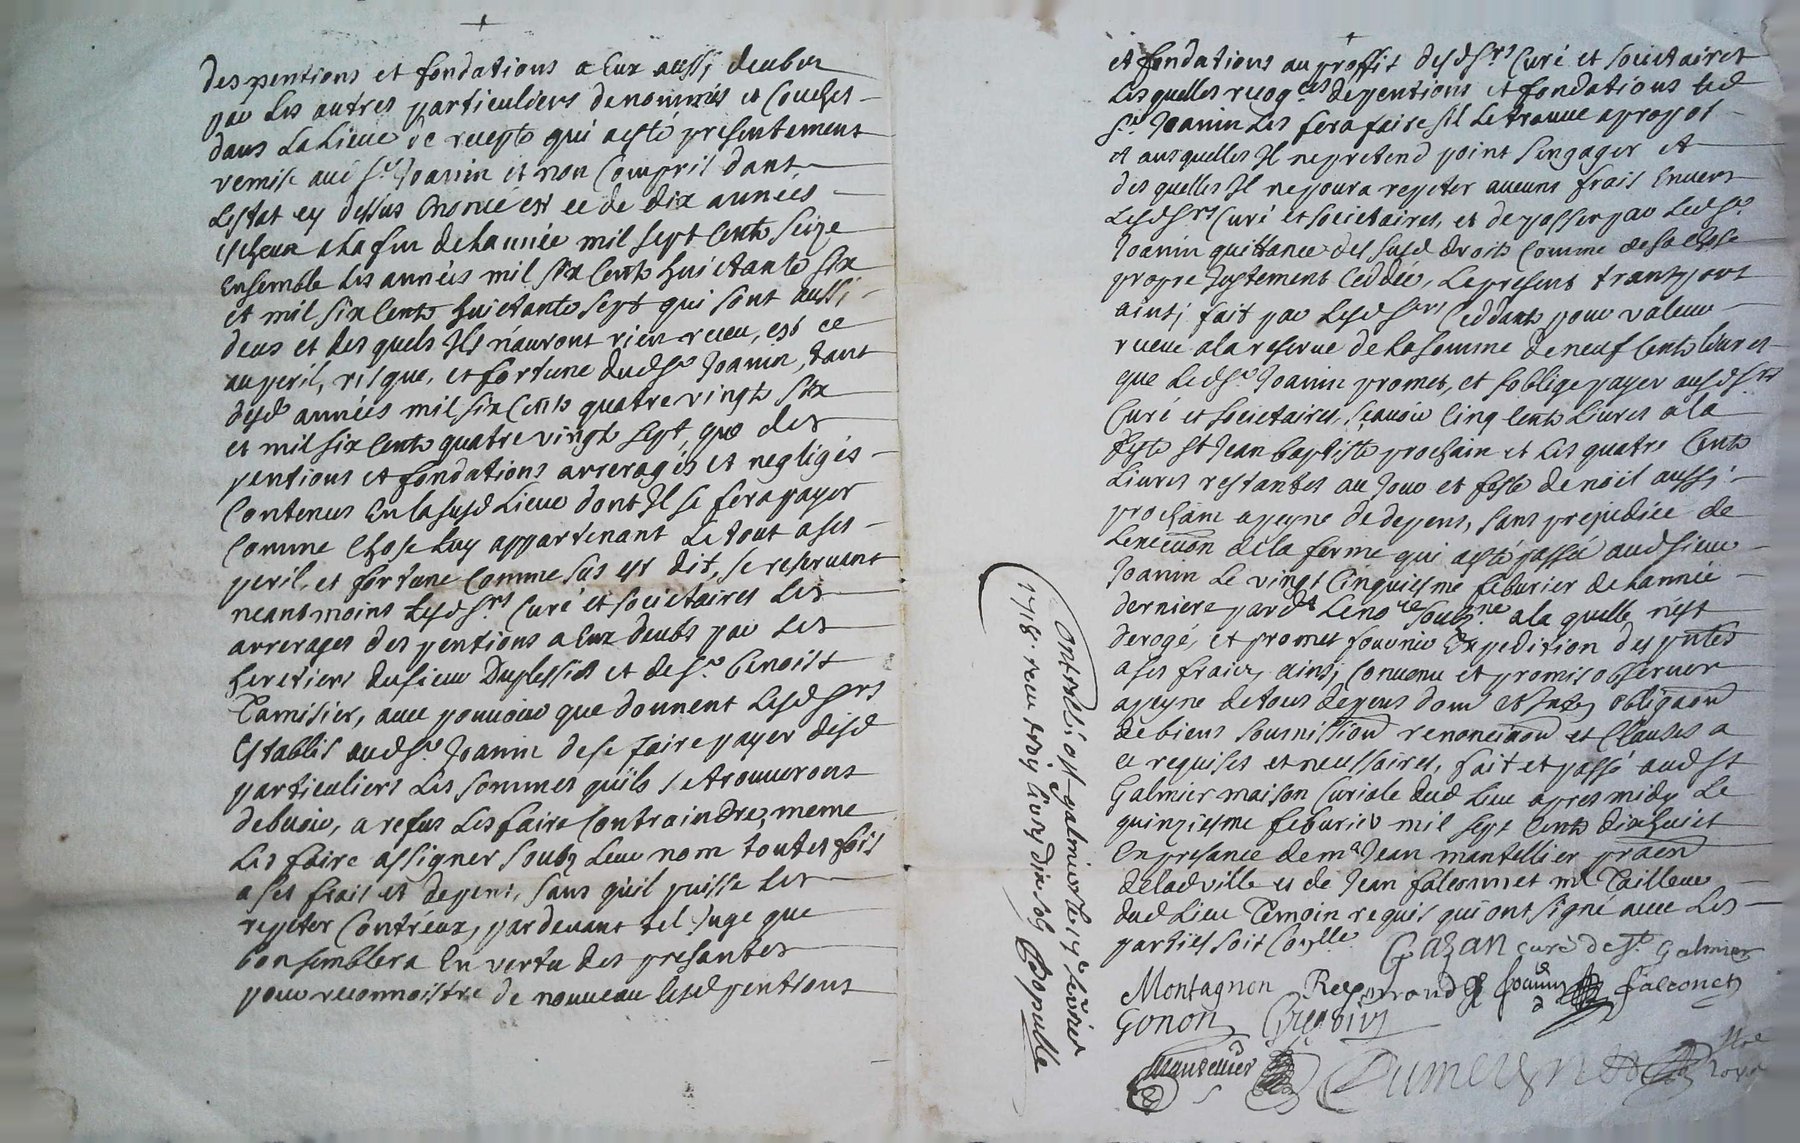 des pentions et fondations a Eux aussi deubes
par les autres particuliers denommés et Couchés
dans La Lieve de recepte qui a esté presentement
remise aud sr. Joanin et non Compris dans
Lestat cy dessus Enoncé et ce de dix années
Escheux a La fin de Lannée mil sept Cents seize
Ensemble les années mil six Cents huictante six
et mil six Cents huictante sept qui sont aussi
deus et des quels Ils n'auront rien receu, est ce
au peril, risque, et fortune dud sr. Joanin, tant
desd années mil six Cents quatre vingts six
et mil six Cents quatre vingts sept, que des
pentions et fondations arreragés et negligés
Contenus En la susd Lieve dont Il se fera payer
Comme Chose Luy appartenant Le tout a ses
peril, et fortune Comme sus est dit, se reservent
neantmoins Lesd srs Curé et societaires Les
arrerages des pentions a Eux deubs par Les
heretiers du sieur Duplessis et de sr. Benoist
Tamisier, avec pouvoir que donnent Lesd srs
Establis aud sr. Joanin de se faire payer desd
particuliers Les sommes quils se trouveront
debvoir, a refus Les faire Contraindre, meme
Les faire assigner soubz Leur nom toutes fois
a ses frais et depens, sans qu'il puisse Les
repeter Contr'eux, pardevant tel Juge que
bon semblera En vertu des presantes
pour reconnoistre de nouveau lesd pentions
et fondations au proffit desd srs. Curé et societaires
Les quelles recogces de pentions et fondations led
sr. Joanin Les fera faire sil Le trouve a propos
et aus quelles Il ne pretend point s'engager et
des quelles Il ne poura repeter aucuns frais Envers
Lesd srs Curé et societaires, et de passer par Led sr.
Joanin quittance des susd droits Comme de sa chose
propre Justement Ceddée, Le present transport
ainsi fait par Lesd srs Ceddants pour valeur
receue a la reserve de La somme de neuf Cents livres
que Led sr. Joanin promet, et soblige payer ausd srs
Curé et societaires, scavoir Cinq Cents Livres a la
feste st Jean baptiste prochain et Les quatre Cents
Livres restantes au Jour et feste de noël aussi
prochain a peyne de depens, sans prejudice de
Lexecuon de la ferme qui a esté passée aud sieur
Joanin Le vingt Cinquiesme feburier de Lannée
derniere pardt Le nore soubzne a la quelle n'est
derogé, et promet fournir Expedition des pntes
a ses fraicz, ainsi Convenu et promis observer
a peyne de tous depens dom et Intz obligaon
de biens soumission renonciaon et Clauses a
ce requises et necessaires, fait et passé aud st
Galmier maison Curiale dud Lieu apres midy Le
quinziesme feburier mil sept Cents dixhuict
En presance de me. Jean mantellier praen
de lad ville et de Jean falconnet me Tailleur
dud Lieu Temoin requis qui ont signé avec Les
parties soit Coulle
Gazan curé de st. Galmier
Montagnon Reymond Joanin falconet
Gonon Gregoire
Mantellier Dumeyn nore royal
Contrerollé a st galmier le 17e fevrier
1718. receu treize livres dix sols Populle